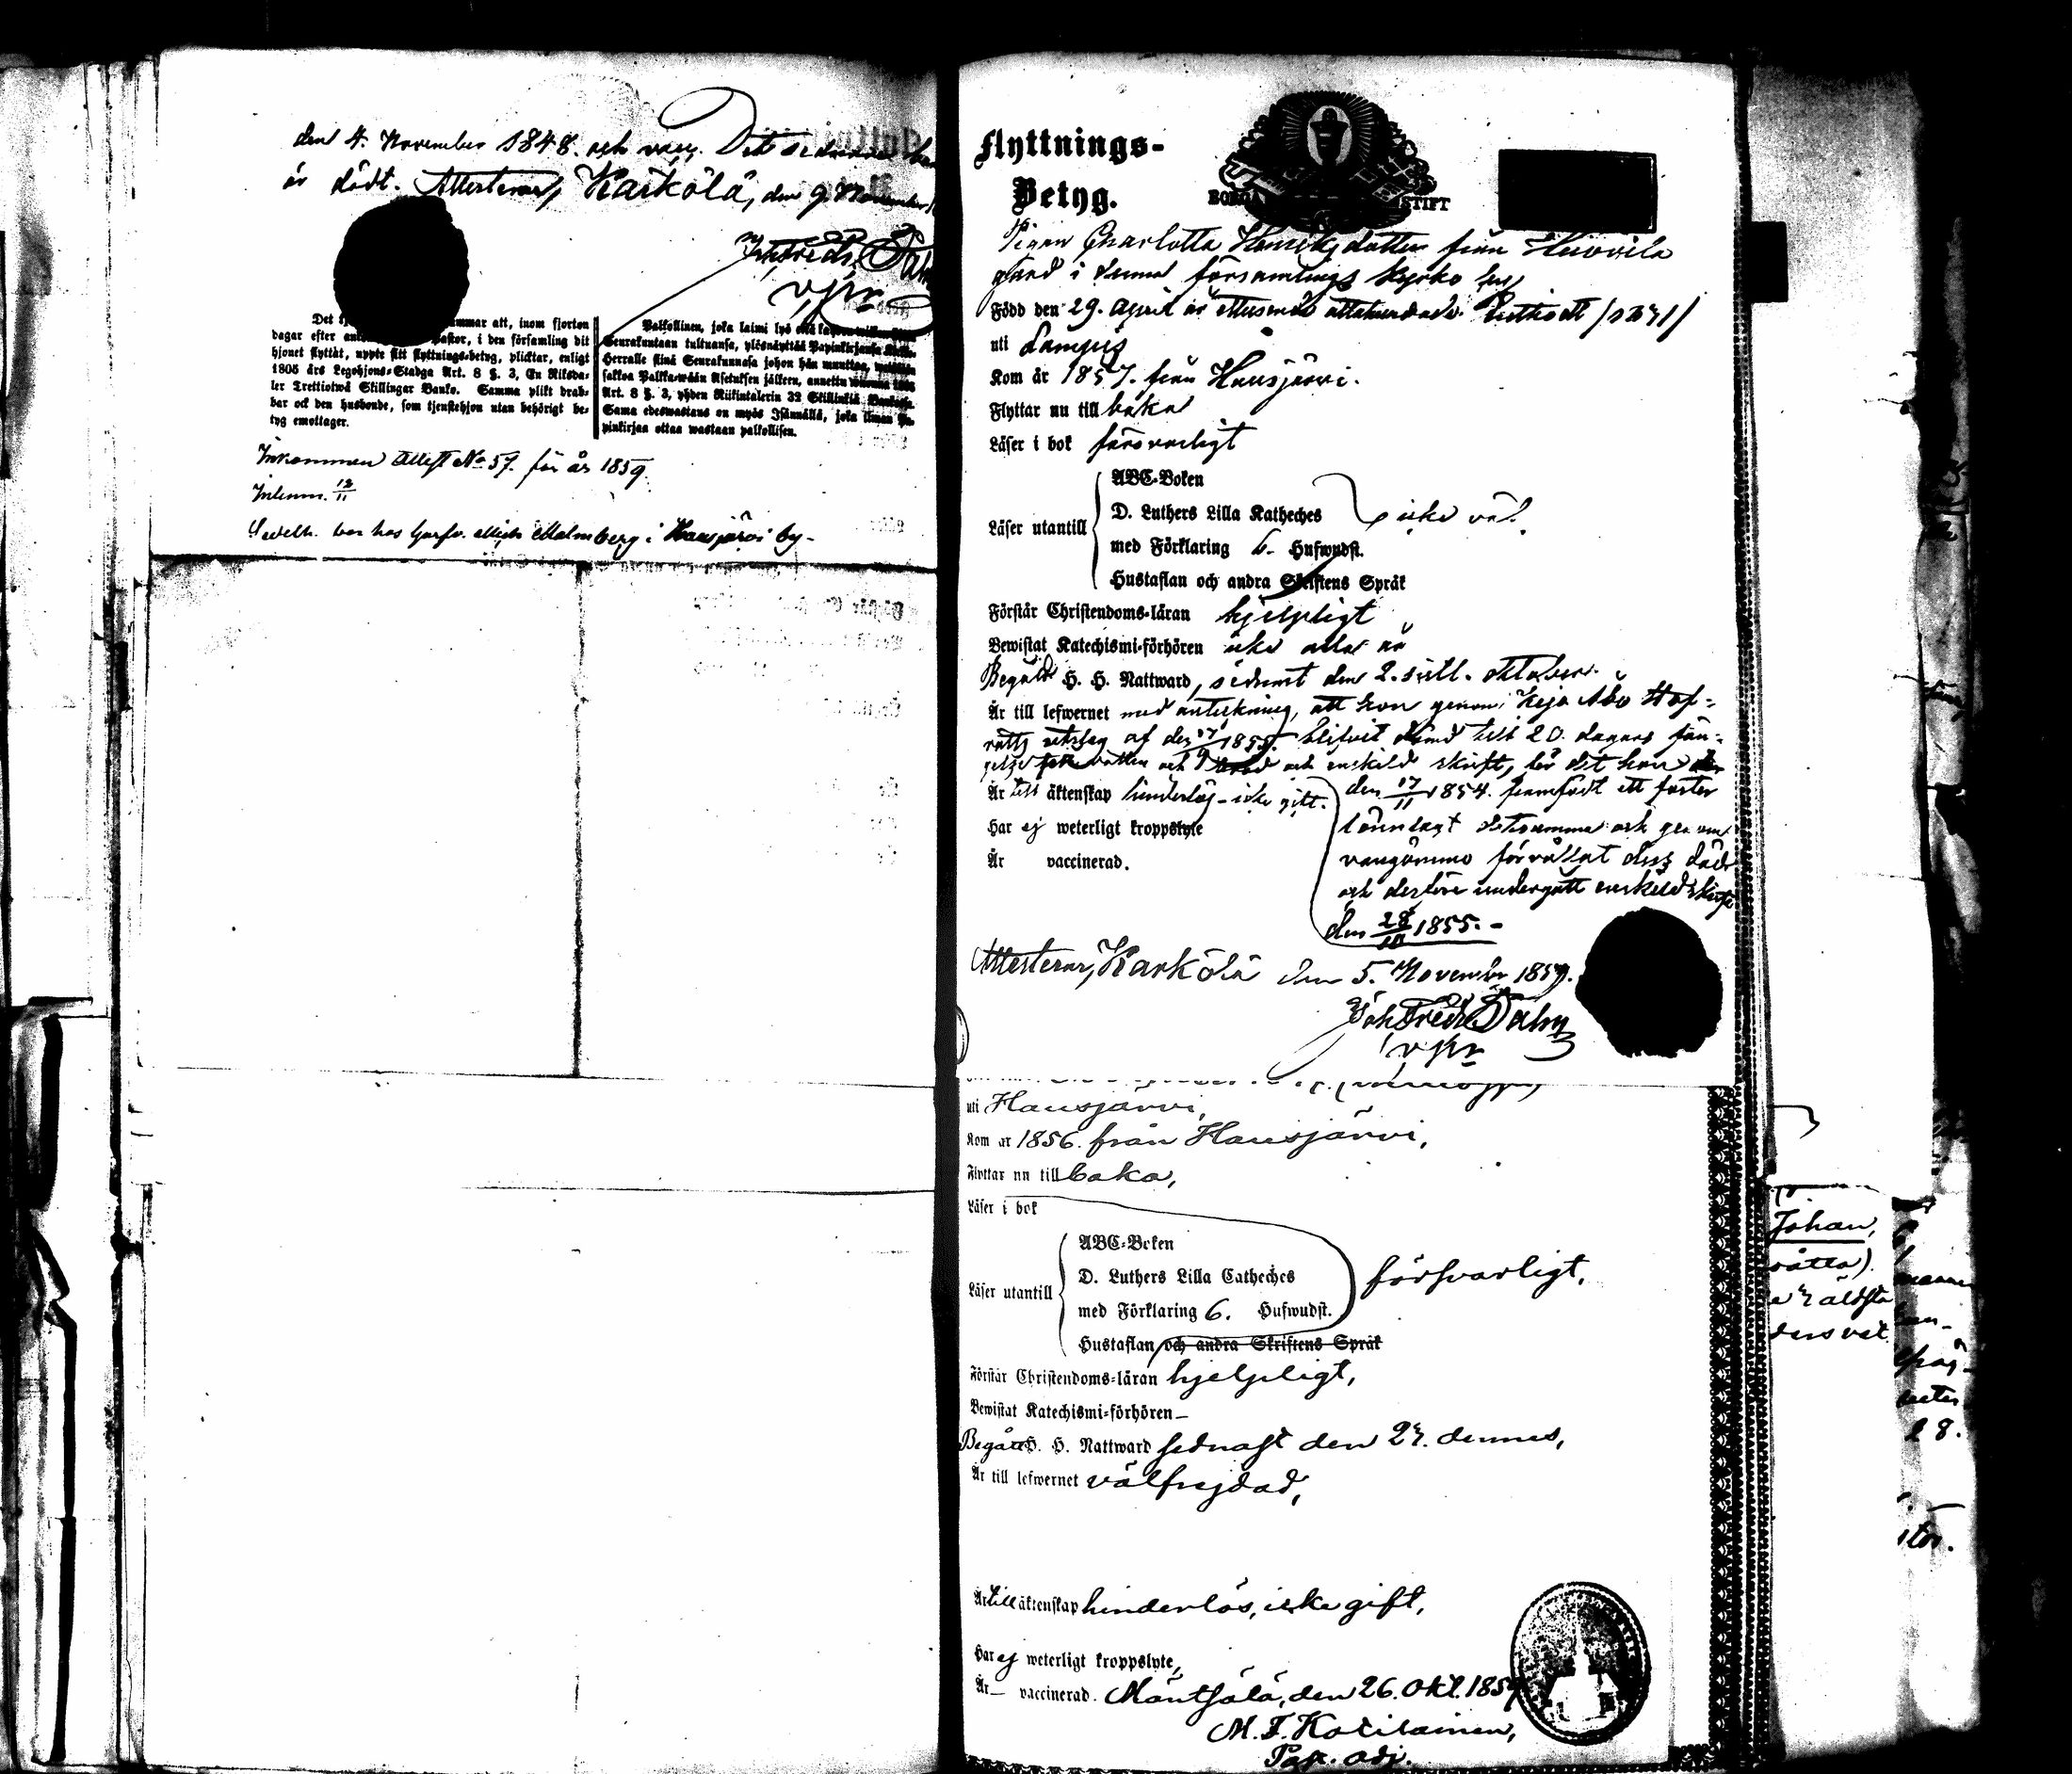 den 4. November 1848. och vacc. Det sednare
är dödt. Attesterar, Kärkölä, den 9. November
Joh Fredr Dahn
v. p:r
Det
ammar att, inom fjorton
dagar efter
Pastor, i den församling dit
hjonet flyttat, uppte sitt flyttnings-betyg, plicktar, enligt
1805 års Legohjons-Stadga Art. 8 §. 3, En Riksda-
ler Trettiotwå Skillingar Banko. Samma plikt drab-
bar ock den husbonde, som tjenstehjon utan behörigt be-
tyg emottager.
Palkollinen, joka laimi lyö
Seurakuntaan tultuansa, ylösnäyttää Papinkirjansa
Herralle siinä Seurakunnasa johon hän muuttaa,
sakkoa Palkka-wäen Asetuksen jälkeen, annettu wuonna 1805
Art. 8 §. 3, yhden Riikintalerin 32 Skillinkiä Bankosa.
Sama edeswastaus on myös Isännällä, joka ilman Pa-
pinkirjaa ottaa wastaan palkollisen.
Inkommen Attest No 57. för år 1859.
Inlemn. 12/11
hos Garfv. Malmberg i Hausjärvi by-
Flyttnings-
Betyg.
BORGÅ STIFT
Pigan Charlotta Henriksdotter från Huovila
gård i denna församlings kyrko by
Född den 29. April år ettusende åttahundrade Trettioett /1831/
uti Lampis
Kom år 1857. från Hausjärvi.
Flyttar nu till baka
Läser i bok försvarligt
ABC-Boken
D. Luthers Lilla Katheches
Läser utantill
icke väl.
med Förklaring 6. Hufwudst.
Hustaflan och andra Skriftens Språk
Förstår Christendoms-läran hjelpligt
Bewistat Katechismi-förhören icke alla år
Begått H. H. Nattward, sednast den 2. sistl. Oktober.
Är till lefwernet med anteckning, att hon genom Kejs. Åbo Hof-
rätts utslag af den 1855. blifvit dömd till 20 dagars fän-
gelse vatten och bröd och enskild skrift, för det hon
den 17/11 1854. framfödt ett foster
Är till äktenskap hinderlös - icke gift.
lönnlagt detsamma och genom
Har ej weterligt kroppslyte
vangömmo förvållat dess död
Är vaccinerad.
och derföre undergått enskild skrift
den 28/10 1855. -
Attesterar, Kärkölä den 5. November 1859.
Joh Fredr Dahn
v. p:r
uti Hausjärvi,
Kom år 1856. från Hausjärvi,
Flyttar nu till baka,
Läser i bok
ABC-Boken
D. Luthers Lilla Catheches
Läser utantill
försvarligt,
med Förklaring 6. Hufwudst.
Hustaflan och andra Skriftens Språk
Förstår Christendoms-läran hjelpligt,
Bewistat Katechismi-förhören -
Begått H. H. Nattward sednast den 23. dennes,
Är till lefwernet välfrejdad,
Är till äktenskap hinderlös, icke gift,
Har ej weterligt kroppslyte,
Är - vaccinerad. Mäntsälä, den 26. Okt. 1859
M. F. Kotilainen,
Past. adj.
Johan,